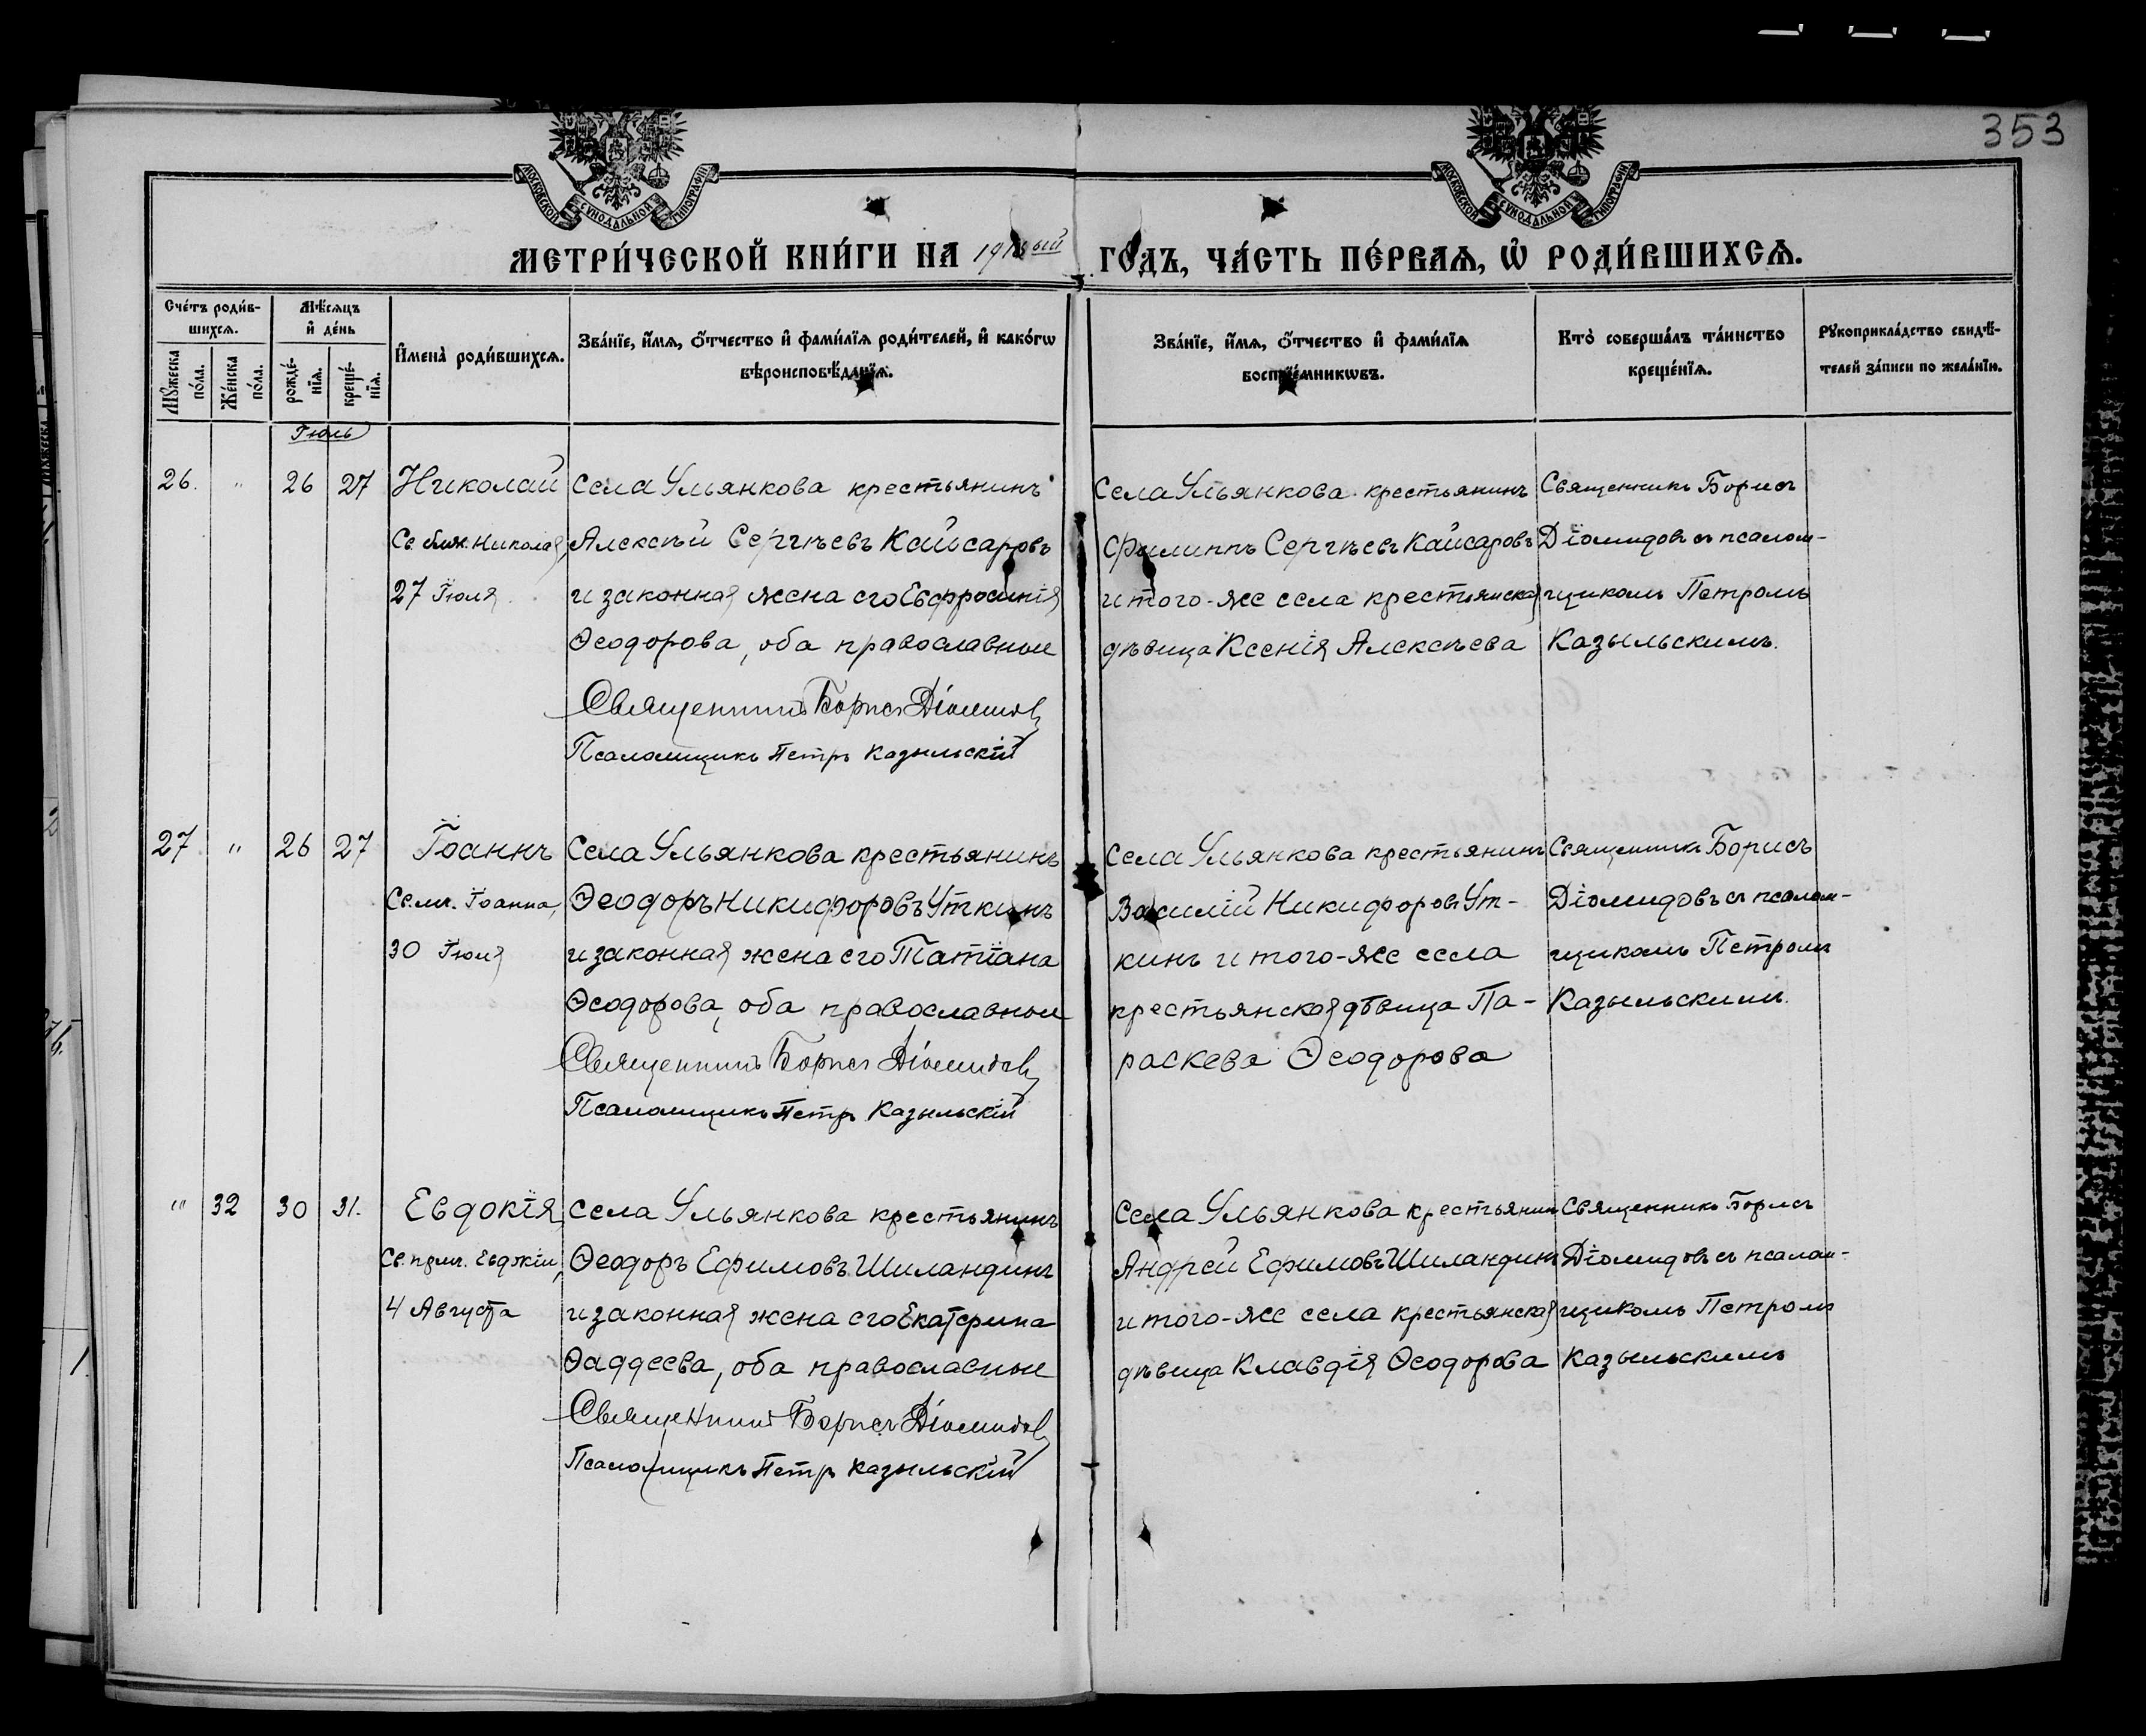 353
МОСКОВСКОЙ СѴНОДАЛЬНОЙ ТИПОГРАФІИ
МОСКОВСКОЙ СѴНОДАЛЬНОЙ ТИПОГРАФІИ
МЕТРИ́ЧЕСКОЙ КНИ́ГИ НА
ГО́ДЪ, ЧА́СТЬ ПЕ́РВАѦ, Ѡ҆ РОДИ́ВШИХСѦ.
Сче́тъ роди́в-
шихсѧ.
Мѣ́сѧцъ
и҆ де́нь
Мꙋ́жеска по́ла.
Же́нска по́ла.
рожде́-нїѧ.
креще́-нїѧ.
И҆мена̀ роди́вшихсѧ.
Зва́нїе, и҆́мѧ, ѻ҆́тчество и҆ фами́лїѧ роди́телей, и҆ како́гѡ
вѣроисповѣ́данїѧ.
Зва́нїе, и҆́мѧ, ѻ҆́тчество и҆ фами́лїѧ
воспрїе́мникѡвъ.
Кто̀ соверша́лъ та́инство
креще́нїѧ.
Рꙋкоприкла́дство свидѣ́-
телей за́писи по жела́нїю.
Іюль
26. " 26 27 Николай
Св. блж. Николая
27 Іюля
Села Ульянкова крестьянинъ
Алексѣй Сергѣевъ Кайсаровъ
и законная жена его Евфросинія
Ѳеодорова, оба православные
Священникъ Борисъ Діомидовъ
Псаломщикъ Петръ Казыльскій
Села Ульянкова крестьянинъ
Филиппъ Сергѣевъ Кайсаровъ
и того-же села крестьянская
дѣвица Ксенія Алексѣева
Священникъ Борисъ
Діомидовъ съ псалом-
щикомъ Петромъ
Казыльскимъ.
27 " 26 27 Іоаннъ
Св. мч. Іоанна,
30 Іюля
Села Ульянкова крестьянинъ
Ѳеодоръ Никифоровъ Уткинъ
и законная жена его Татіана
Ѳеодорова, оба православные
Священникъ Борисъ Діомидовъ
Псаломщикъ Петръ Казыльскій
Села Ульянкова крестьянинъ
Василій Никифоровъ Ут-
кинъ и того-же села
крестьянская дѣвица Па-
раскева Ѳеодорова
Священникъ Борисъ
Діомидовъ съ псалом-
щикомъ Петромъ
Казыльскимъ.
" 32 30 31. Евдокія
Св. прмч. Евдокіи,
4 Августа
Села Ульянкова крестьянинъ
Ѳеодоръ Ефимовъ Шиландинъ
и законная жена его Екатерина
Ѳаддеева, оба православные
Священникъ Борисъ Діомидовъ
Псаломщикъ Петръ Казыльскій
Села Ульянкова крестьянинъ
Андрей Ефимовъ Шиландинъ
и того-же села крестьянская
дѣвица Клавдія Ѳеодорова
Священникъ Борисъ
Діомидовъ съ псалом-
щикомъ Петромъ
Казыльскимъ